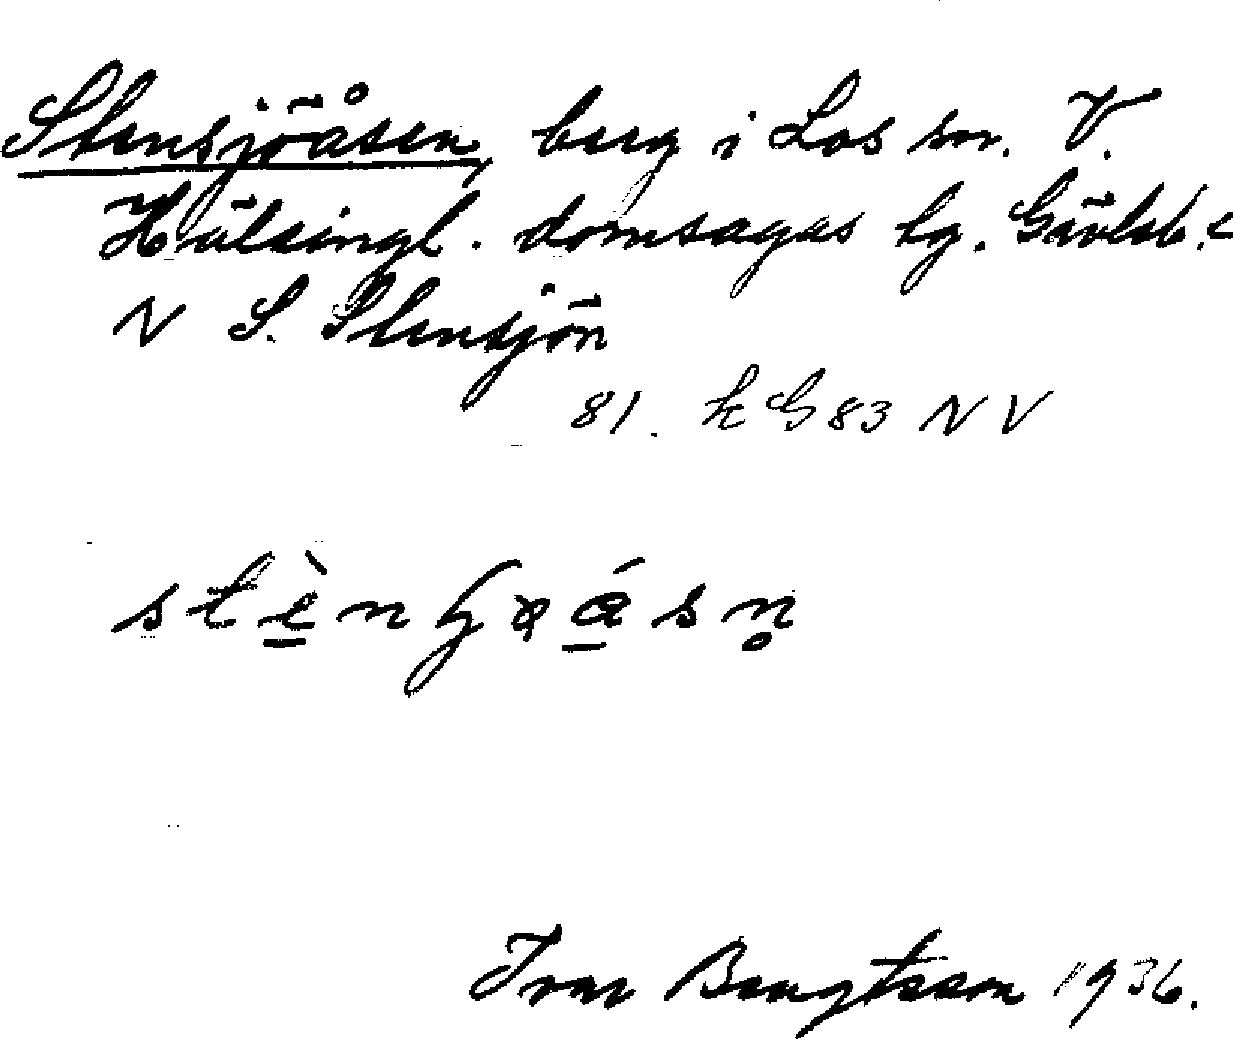 Stensjöåsen, berg i Los sn. V.
Hälsingl. domsagas tg. Gävleb. l
N S. Stensjön
81. kG83 NV
Ivar Bengtsson 1936.